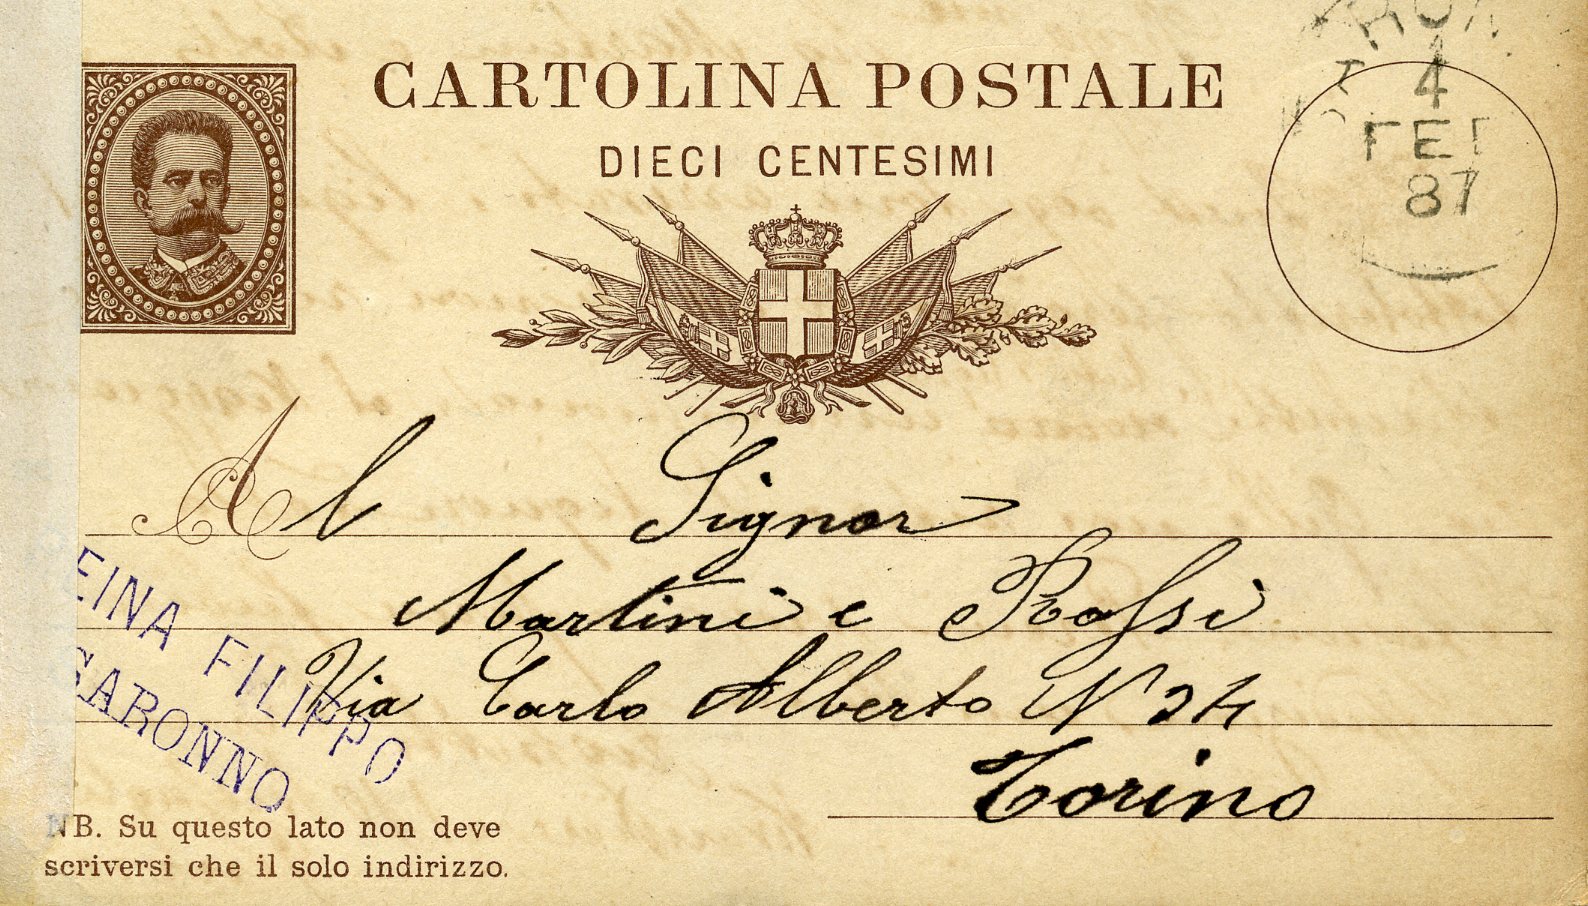 CARTOLINA POSTALE
DIECI CENTESIMI
4
FEB
87
Al Signor
Martini e Rossi
Via Carlo Alberto N 34
Torino
EINA FILIPPO
SARONNO
NB. Su questo lato non deve
scriversi che il solo indirizzo.